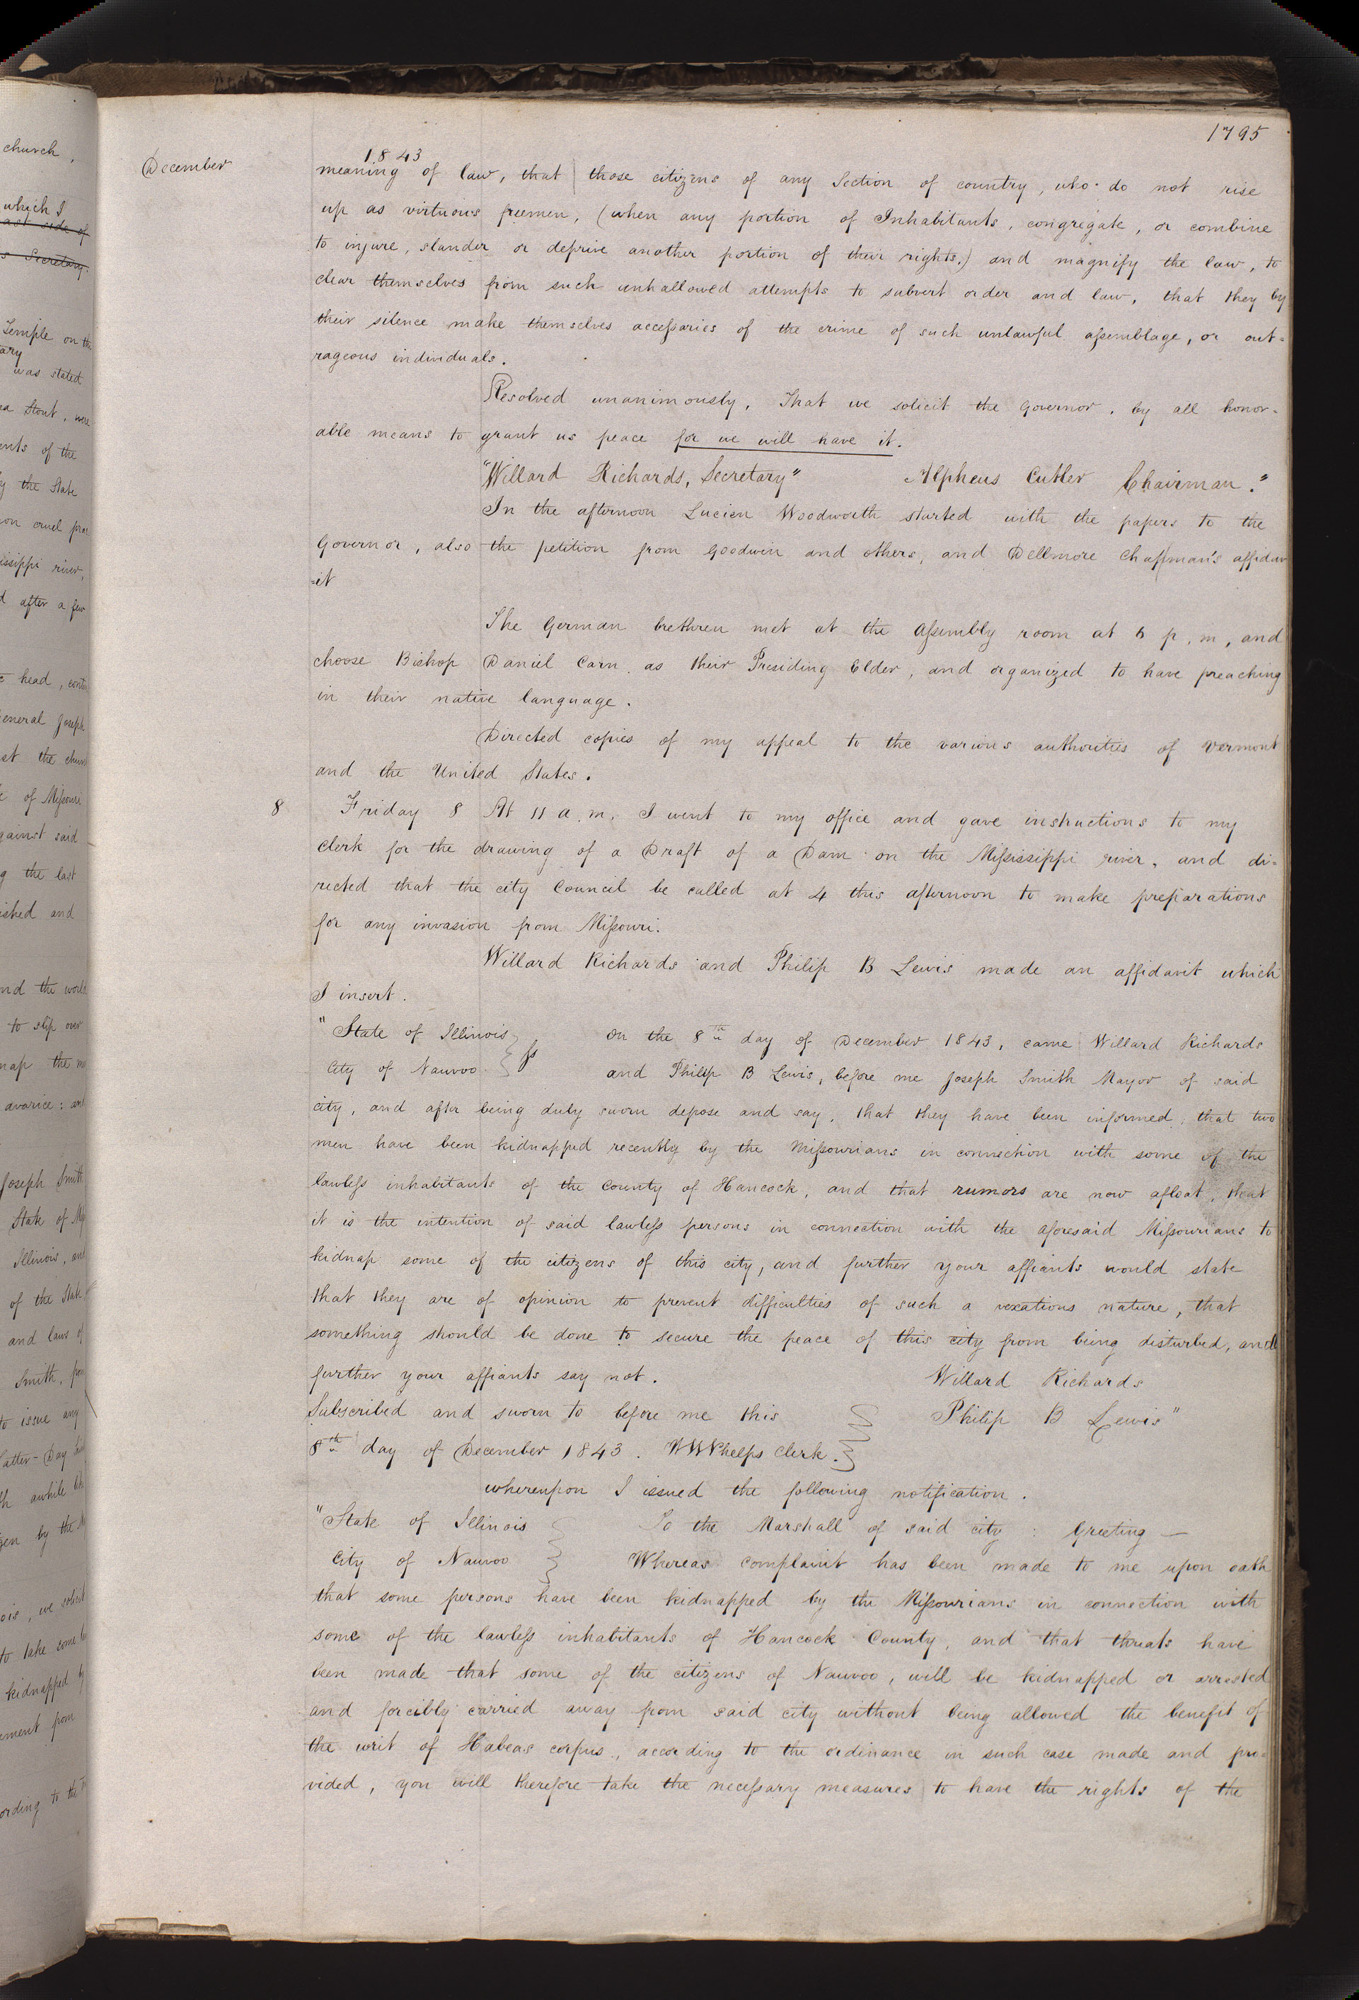 church,
which I
ast side of
s Secretary.
Temple on the
ary
was stated
a Stout, were
ents of the
y the State
on cruel
issippi river,
d after a few
head,
General Joseph
st the church
of Missouri
gainst said
g the last
ished and
nd the
to slip over
nap the
avarice: and
Joseph Smith
State of
Illinois, and
of the State
and laws of
Smith,
to issue any
Latter-Day
awhile
en by the
ois, we
to take some
kidnapped by
ement from
ording to the
1795
December 1843
meaning of law, that those citizens of any Section of country, who do not rise
up as virtuous freemen, (when any portion of Inhabitants, congregate, or combine
to injure, slander or deprive another portion of their rights.) and magnify the law, to
clear themselves from such unhallowed attempts to subvert order and law, that they by
their silence make themselves accessaries of the crime of such unlawful assemblage, or out-
rageous individuals.
Resolved unanimously, That we solicit the Governor, by all honor-
able means to grant us peace for we will have it.
"Willard Richards, Secretary" Alpheus Cutler Chairman."
In the afternoon Lucien Woodworth started with the papers to the
Governor, also the petition from Goodwin and others, and Dellmore Chapman's affidav
-it
The German brethren met at the Assembly room at 6 p.m, and
choose Bishop Daniel Carn as their Presiding Elder, and organized to have preaching
in their native language.
Directed copies of my appeal to the various authorities of Vermont
and the United States.
8 Friday 8 At 11 a.m. I went to my office and gave instructions to my
clerk for the drawing of a Draft of a Dam on the Mississippi river, and di-
rected that the city Council be called at 4 this afternoon to make preparations
for any invasion from Missouri.
Willard Richards and Philip B Lewis made an affidavit which
I insert.
"State of Illinois } ss On the 8th day of December 1843, came Willard Richards
City of Nauvoo } and Philip B Lewis, before me Joseph Smith Mayor of said
city, and after being duly sworn depose and say, that they have been informed, that two
men have been kidnapped recently by the Missourians in connection with some of the
lawless inhabitants of the County of Hancock, and that rumors are now afloat, that
it is the intention of said lawless persons in connection with the aforesaid Missourians to
kidnap some of the citizens of this city, and further your affiants would state
that they are of opinion to prevent difficulties of such a vexatious nature, that
something should be done to secure the peace of this city from being disturbed, and
further your affiants say not. Willard Richards
Subscribed and sworn to before me this } Philip B Lewis"
8th day of December 1843. WWPhelps Clerk. }
whereupon I issued the following notification.
"State of Illinois } To the Marshall of said city: Greeting—
City of Nauvoo } Whereas complaint has been made to me upon oath
that some persons have been kidnapped by the Missourians in connection with
some of the lawless inhabitants of Hancock County, and that threats have
been made that some of the citizens of Nauvoo, will be kidnapped or arrested
and forcibly carried away from said city without being allowed the benefit of
the writ of Habeas corpus, according to the ordinance in such case made and pro-
vided, you will therefore take the necessary measures to have the rights of the